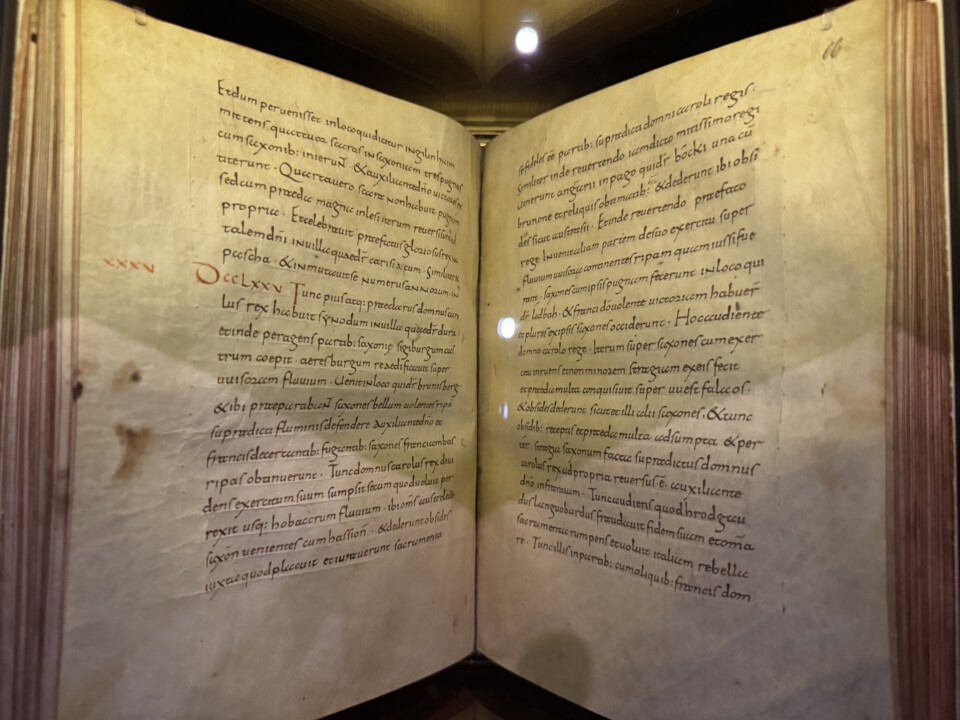 Et dum peruenisset in loco qui dicitur ingilinhaim
mittens quattuor scaras in saxoniam tres pugnam
cum saxonib: inierunt & auxiliante dño uictores ex
titerunt · Quarta uero scara non habuit pugnam
sed cum praeda magna inlesi iterum reuersi sunt ad
propria · Et celebrauit praefatus gloriosus rex na
talem dñi in uilla quae dr̄ carisiacum · Similiter &
pascha · & inmutauit se numerus annorum in
xxxv
DCCLXXV Tunc pius atq: praeclarus domnus caro
lus rex habuit synodum in uilla quae dr̄ duria
et inde peragens partib: saxoniae sigiburgum cas
trum coepit · aeresburgum reaedificauit super
uuisoram fluuium · Uenit in loco qui dr̄ brunisberg
& ibi praeparabant saxones bellum uolentes ripā
supradicta fluminis defendere auxiliante dño et
francis decertantib: fugientib: saxones franci ambas
ripas obtinuerunt · Tunc domnus carolus rex diui
dens exercitum suum sumpsit secum quod uoluit per
rexit usq: hobaccrum fluuium · ibi oms austreleudi
saxon uenientes cum hassion · & dederunt obsides
iuxta quod placuit et iurauerunt sacramenta
66
se fideles eē partib: supradicta domni caroli regis ·
Similiter inde reuertendo iamdicto mitissimo regi
Uenerunt angarii in pago qui dr̄ bocki una cū
brunone et reliquis obtimatib: & dederunt ibi obsi
des sicut austrasii · Et inde reuertendo praefato
rege Inuenit aliam partem de suo exercitu super
fluuium uuisora continentes ripam quam iussi fue
rant · saxones cum ipsis pugnam fecerunt in loco qui
dr̄ lidbah · & franci dō uolente uictoriam habuer
et plures ex ipsis saxones occiderunt · Hoc audiente
domno carolo rege · Iterum super saxones cum exer
citu inruens et non minorem stragiam ex eis fecit
et praeda multa conquisiuit super uuestfalaos ·
& obsides dederunt sicut et illi alii saxones · & tunc
obsidib: receptis et praeda multa adsumpta & per
ter stragia saxonum facta supradictus domnus
carolus rex ad propria reuersus ē auxiliante
dño in franciam · Tunc audiens quod hrodgau
dus langobardus fraudauit fidem suam et omnia
sacramenta rumpens et uoluit italiam rebella
re · Tunc illis in partib: cum aliquib: francis dom